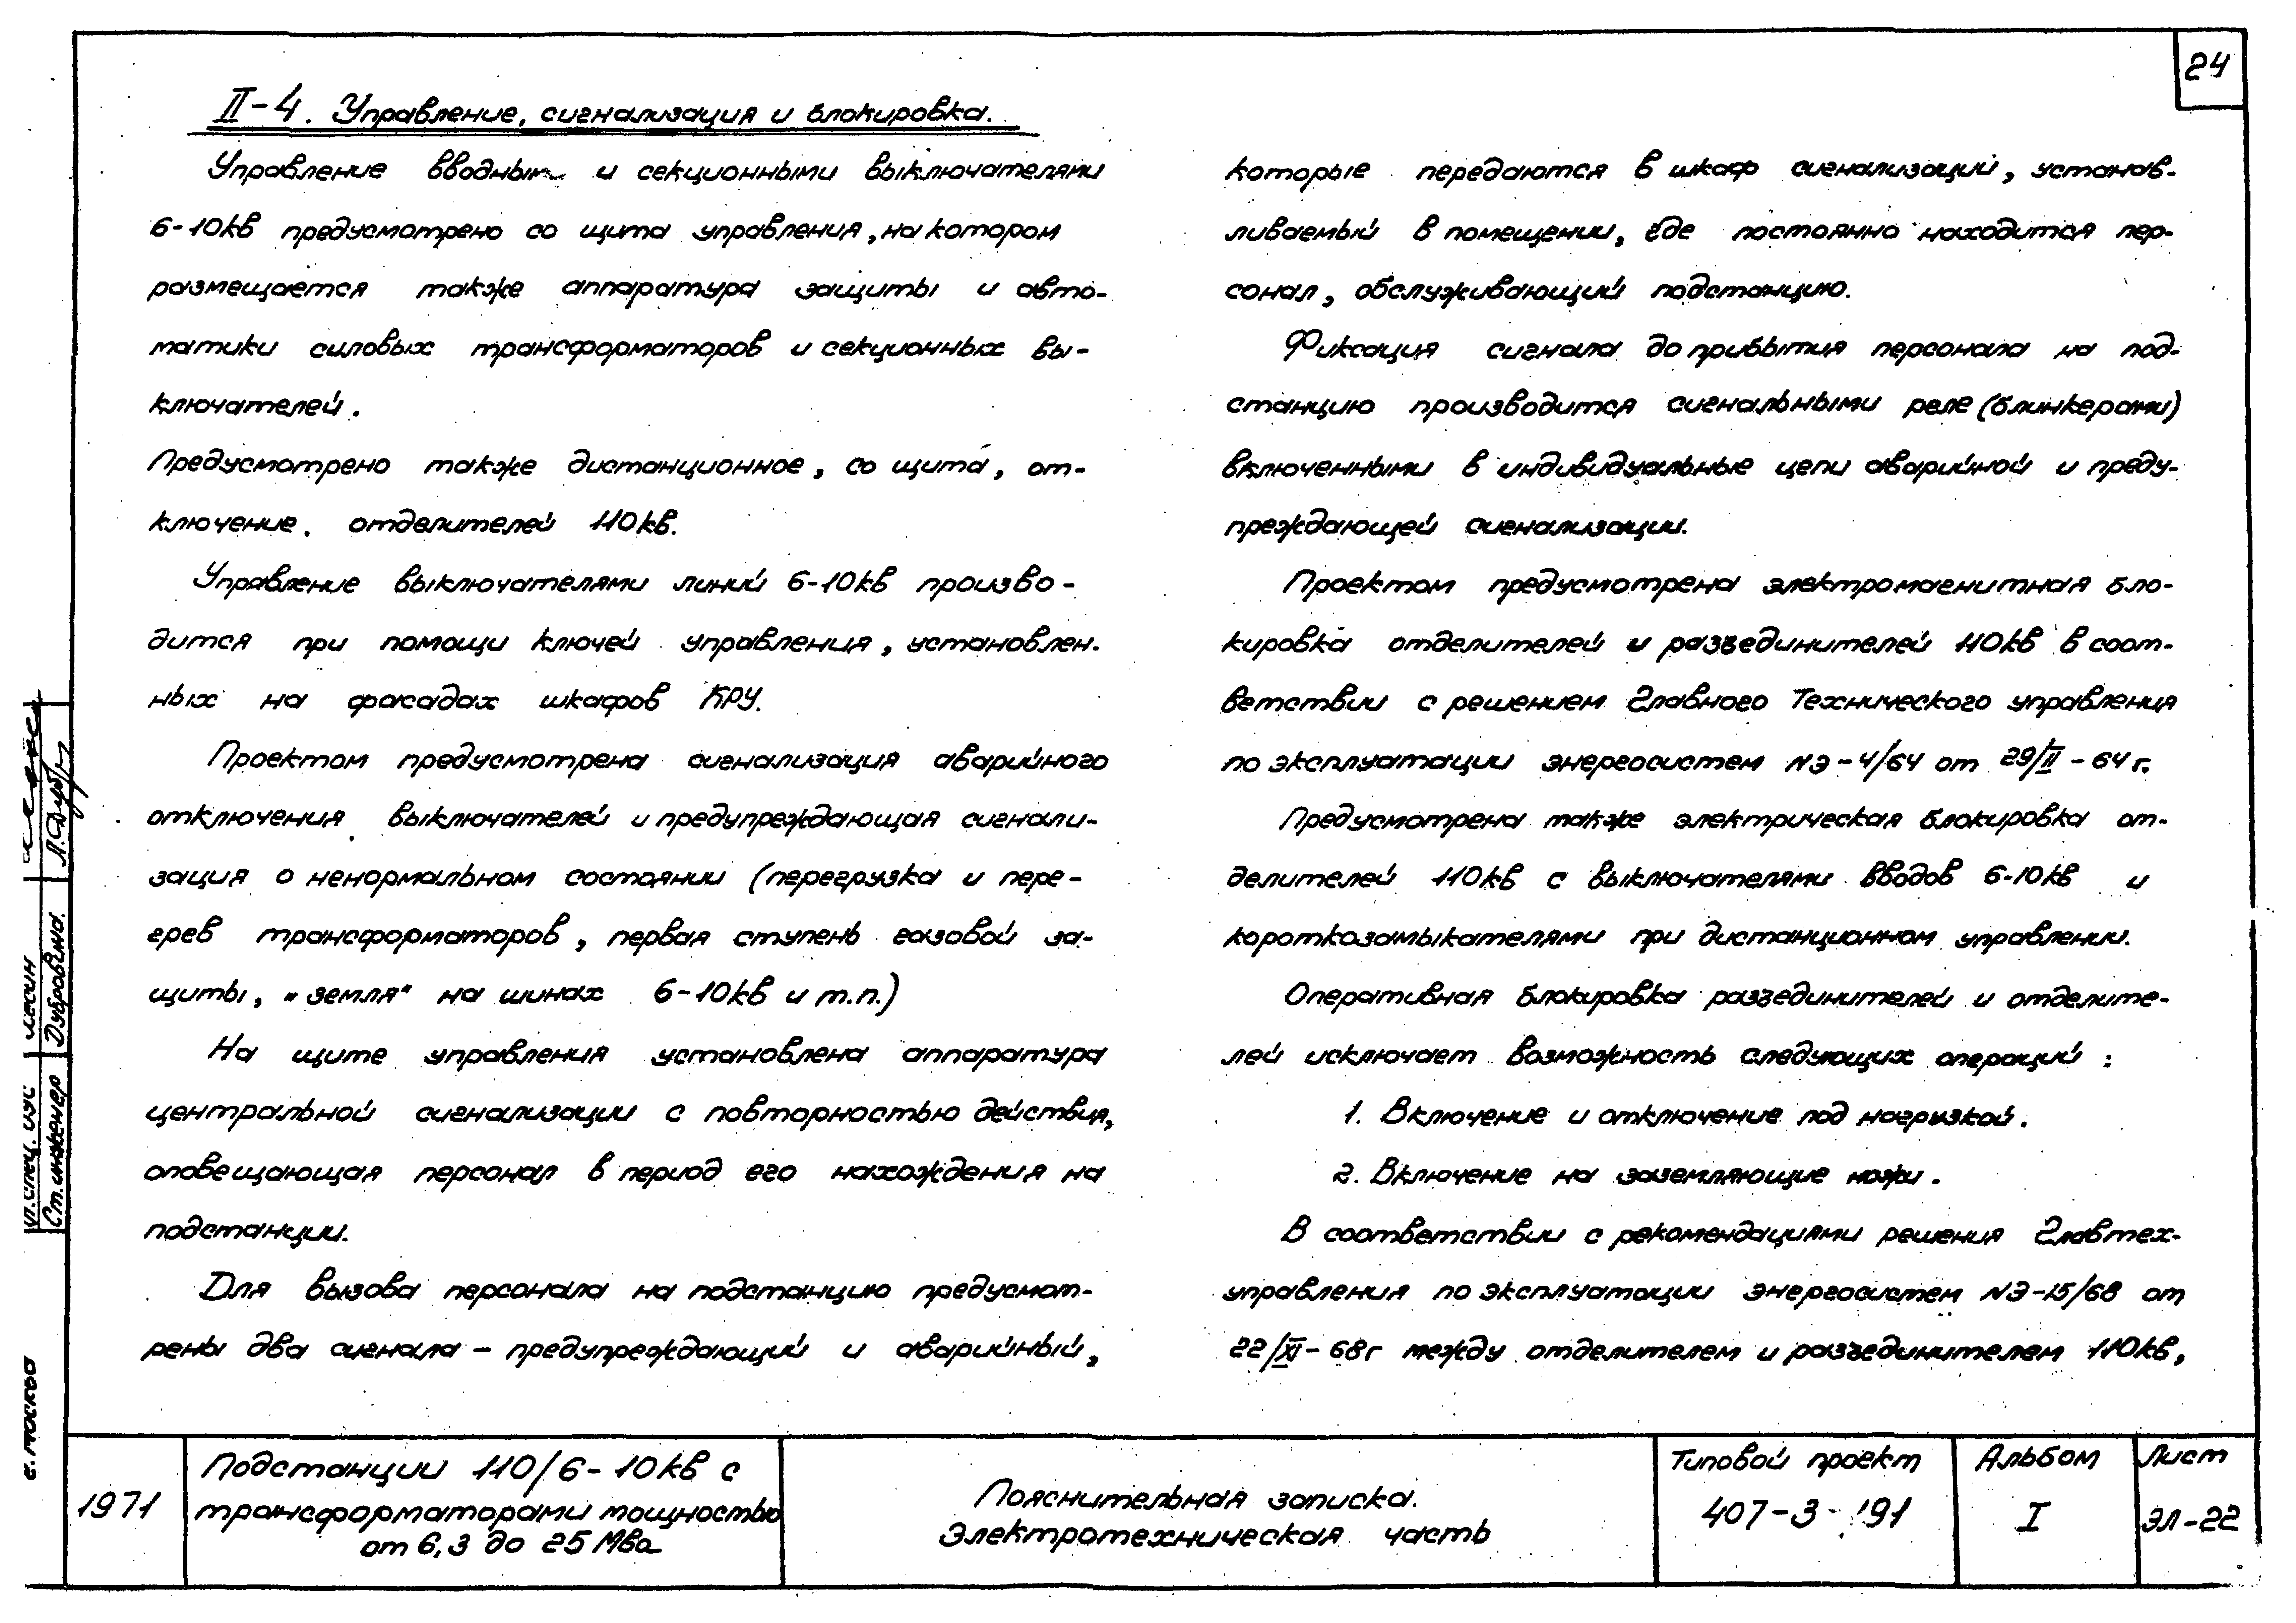 24
II-4. Управление, сигнализация и блокировка.
Управление вводными и секционными выключателями
6-10кв предусмотрено со щита управления, на котором
размещается также аппаратура защиты и авто-
матики силовых трансформаторов и секционных вы-
ключателей.
Предусмотрено также дистанционное, со щита, от-
ключение. отделителей 110кв.
Управление выключателями линий 6-10кв произво-
дится при помощи ключей управления, установлен-
ных на фасадах шкафов КРУ.
Проектом предусмотрена сигнализация аварийного
отключения выключателей и предупреждающая сигнали-
зация о ненормальном состоянии (перегрузка и пере-
грев трансформаторов, первая ступень газовой за-
щиты, „земля" на шинах 6-10кв и т.п.)
На щите управления установлена аппаратура
центральной сигнализации с повторностью действия,
оповещающая персонал в период его нахождения на
подстанции.
Для вызова персонала на подстанцию предусмот-
рены два сигнала – предупреждающий и аварийный,
которые передаются в шкаф сигнализаций, установ-
ливаемый в помещении, где постоянно находится пер-
сонал, обслуживающий подстанцию.
Фиксация сигнала до прибытия персонала на под-
станцию производится сигнальными реле (блинкерами)
включенными в индивидуальные цепи аварийной и преду-
преждающей сигнализации.
Проектом предусмотрена электромагнитная бло-
кировка отделителей и разъединителей 110кв в соот-
ветствии с решением Главного Технического управления
по эксплуатации энергосистем №Э-4/64 от 29/II-64г.
Предусмотрена также электрическая блокировка от-
делителей 110кв с выключателями вводов 6-10кв и
короткозамыкателями при дистанционном управлении.
Оперативная блокировка разъединителей и отделите-
лей исключает возможность следующих операций:
1. Включение и отключение под нагрузкой.
2. Включение на заземляющие ножи.
В соответствии с рекомендациями решения Главтех-
управления по эксплуатации энергосистем №Э-15/68 от
22/XI-68г между отделителем и разъединителем 110кв,
Ст. инженер Дубровина.
г. Москва
1971
Подстанции 110/6-10кв с
трансформаторами мощностью
от 6,3 до 25 Мва
Пояснительная записка.
Электротехническая часть
Типовой проект
407-3-191
Альбом
I
Лист
ЭЛ-22